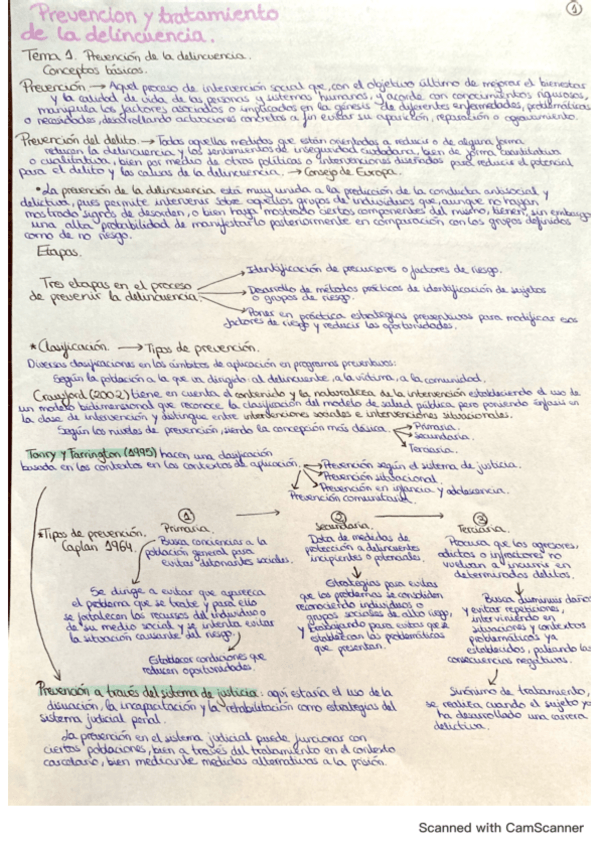 Prevencion y tratamiento
de la delincuencia.
1
Tema 1. Prevención de la delincuencia.
Conceptos básicos.
Prevención → Aquel proceso de intervención social que, con el objetivo último de mejorar el bienestar
y la calidad de vida de las personas y sistemas humanos, y acorde con conocimientos rigurosos,
manipula los factores asociados o implicados en la génesis de diferentes enfermedades, problemáticas
o necesidades, desarrollando actuaciones concretas a fin evitar su aparición, reparación o agravamiento.
Prevención del delito. → Todas aquellas medidas que están orientadas a reducir o de alguna forma
reducan la delincuencia y los sentimientos de inseguridad ciudadana, bien de forma cuantitativa
o cualitativa, bien por medio de otras políticas o intervenciones diseñadas para reducir el potencial
para el delito y las causas de la delincuencia. → Consejo de Europa.
• La prevención de la delincuencia está muy unida a la predicción de la conducta antisocial y
delictiva, pues permite intervenir sobre aquellos grupos de individuos que, aunque no hayan
mostrado signos de desorden, o bien haya mostrado ciertos componentes del mismo, tienen, sin embargo
una alta probabilidad de manifestarlo posteriormente en comparación con los grupos definidos
como de no riesgo.
Etapas.
Tres etapas en el proceso
de prevenir la delincuencia
Identificación de precursores o factores de riesgo.
Desarrollo de métodos prácticos de identificación de sujetos
o grupos de riesgo.
Poner en práctica estrategias preventivas para modificar esos
factores de riesgo y reducir las oportunidades.
* Clasificación. → Tipos de prevención.
Diversas clasificaciones en los ámbitos de aplicación en programas preventivos:
Según la población a la que va dirigido: al delincuente, a la víctima, a la comunidad.
Crawford (2002) tiene en cuenta el contenido y la naturaleza de la intervención estableciendo el uso de
un modelo bidimensional que reconoce la clasificación del modelo de salud pública, pero poniendo énfasis en
la clase de intervención y distingue entre intervenciones sociales e intervenciones situacionales.
Según los niveles de prevención, siendo la concepción más clásica.
Primaria.
Secundaria.
Terciaria.
Tonry y Farrington (1995) hacen una clasificación
basada en los contextos en los contextos de aplicación.
Prevención según el sistema de justicia.
Prevención situacional.
Prevención en infancia y adolescencia.
Prevención comunitaria.
* Tipos de prevención.
Caplan 1964.
1
Primaria.
Busca concienciar a la
población general para
evitar detonantes sociales.
Se dirige a evitar que aparezca
el problema que se trate y para ello
se fortalecen los recursos del individuo o
de su medio social y se intenta evitar
la situación causante del riesgo.
Establecer condiciones que
reducen oportunidades.
2
Secundaria.
Dota de medidas de
protección a delincuentes
incipientes o potenciales.
Estrategias para evitar
que los problemas se consoliden
reconociendo individuos o
grupos sociales de alto riesgo,
y trabajando para evitar que se
establezcan las problemáticas
que presentan.
3
Terciaria.
Procura que los agresores,
adictos o infractores no
vuelvan a incurrir en
determinados delitos.
Busca disminuir daños
y evitar repeticiones,
interviniendo en
situaciones y contextos
problemáticos ya
establecidos, paliando las
consecuencias negativas.
Sinónimo de tratamiento,
se realiza cuando el sujeto ya
ha desarrollado una carrera
delictiva.
Prevención a través del sistema de justicia: aquí estaría el uso de la
disuación, la incapacitación y la rehabilitación como estrategias del
sistema judicial penal.
La prevención en el sistema judicial puede funcionar con
ciertas poblaciones, bien a través del tratamiento en el contexto
carcelario, bien mediante medidas alternativas a la prisión.
Scanned with CamScanner